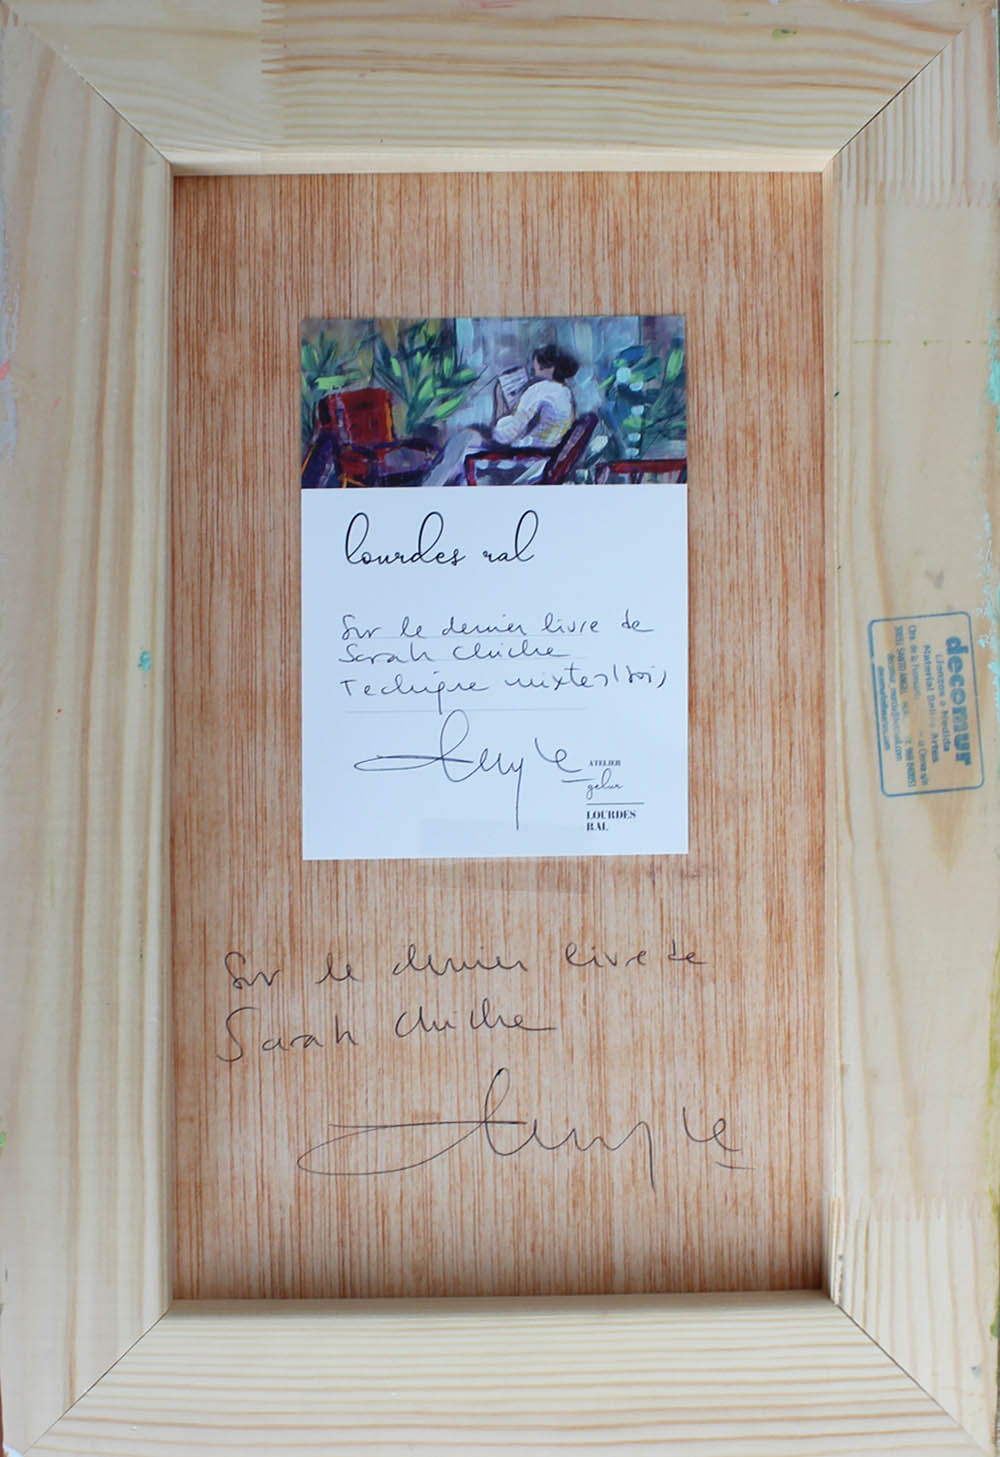 lourdes ral
Sur le dernier livre de
Sarah Chiche
Technique mixte (bois)
ATELIER
gelur
LOURDES
RAL
Sur le dernier livre de
Sarah Chiche
decomur
Lienzos a Medida
Material Bellas Artes